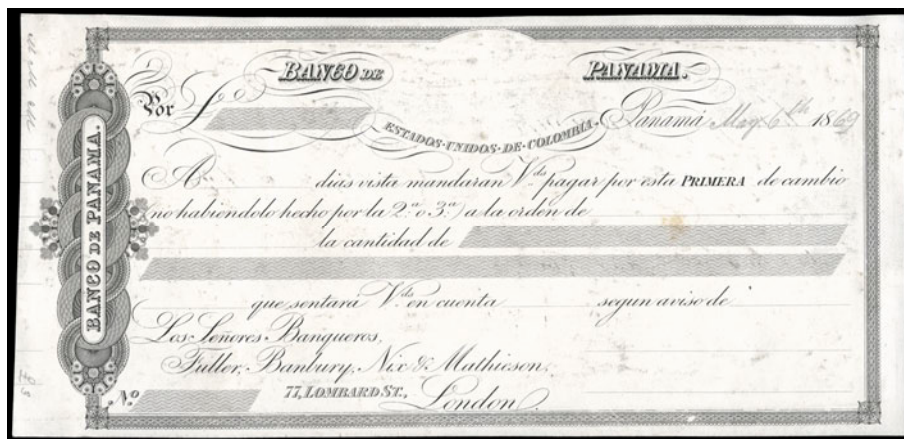 BANCO DE PANAMA.
Por £
ESTADOS·UNIDOS·DE·COLOMBIA. Panamá May 6th 1869
A dias vista mandaran Vds pagar por esta PRIMERA de cambio
(no habiendolo hecho por la 2.a o 3.a) a la orden de
la cantidad de
que sentara Vds en cuenta segun aviso de
Los Señores Banqueros,
Fuller, Banbury, Nix & Mathieson,
77, LOMBARD ST., London.
No
BANCO DE PANAMA.